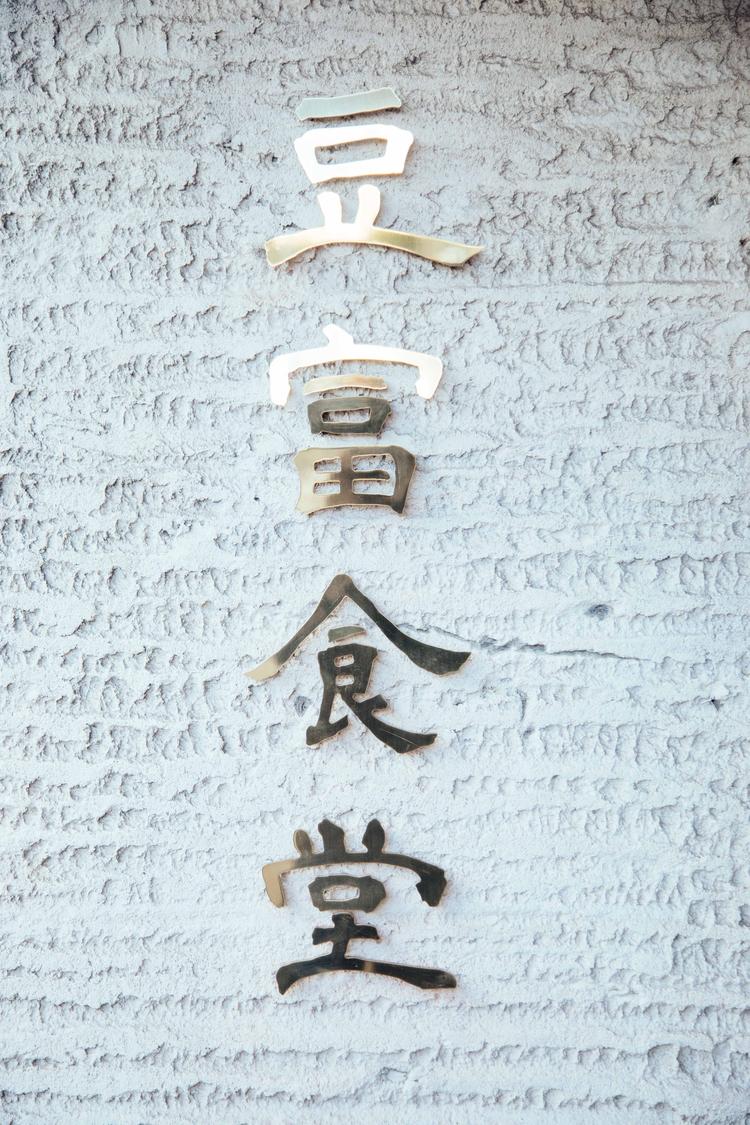 豆富食堂